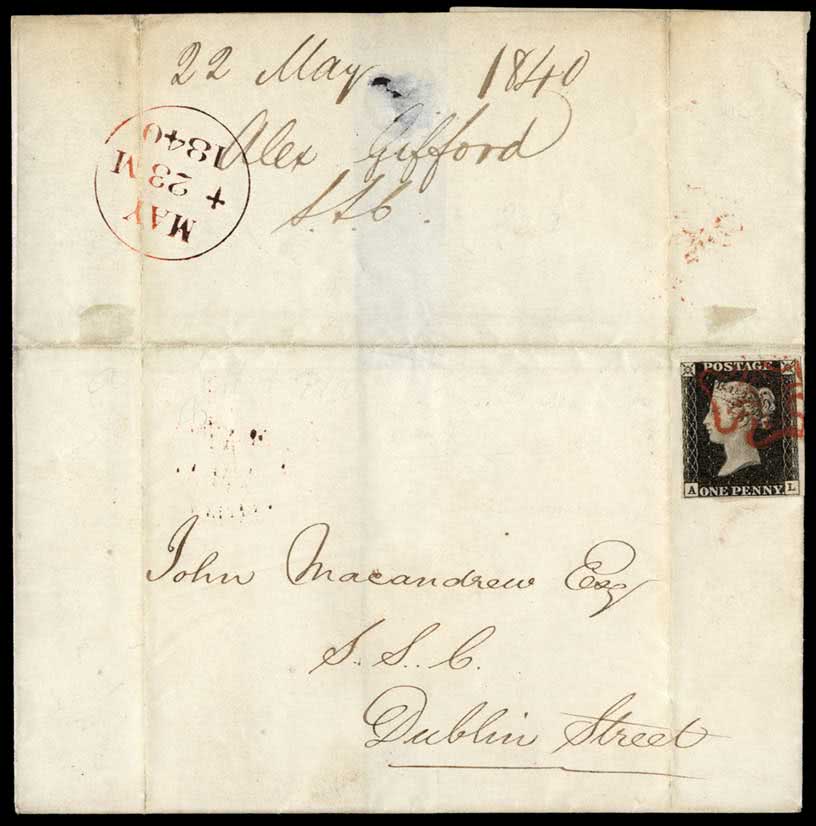 22 May 1840
Alex Gifford
S.S.C.
MAY
+ 23 M
1840
POSTAGE
A ONE PENNY. L
John Macandrew Esq
S. S. C.
Dublin Street